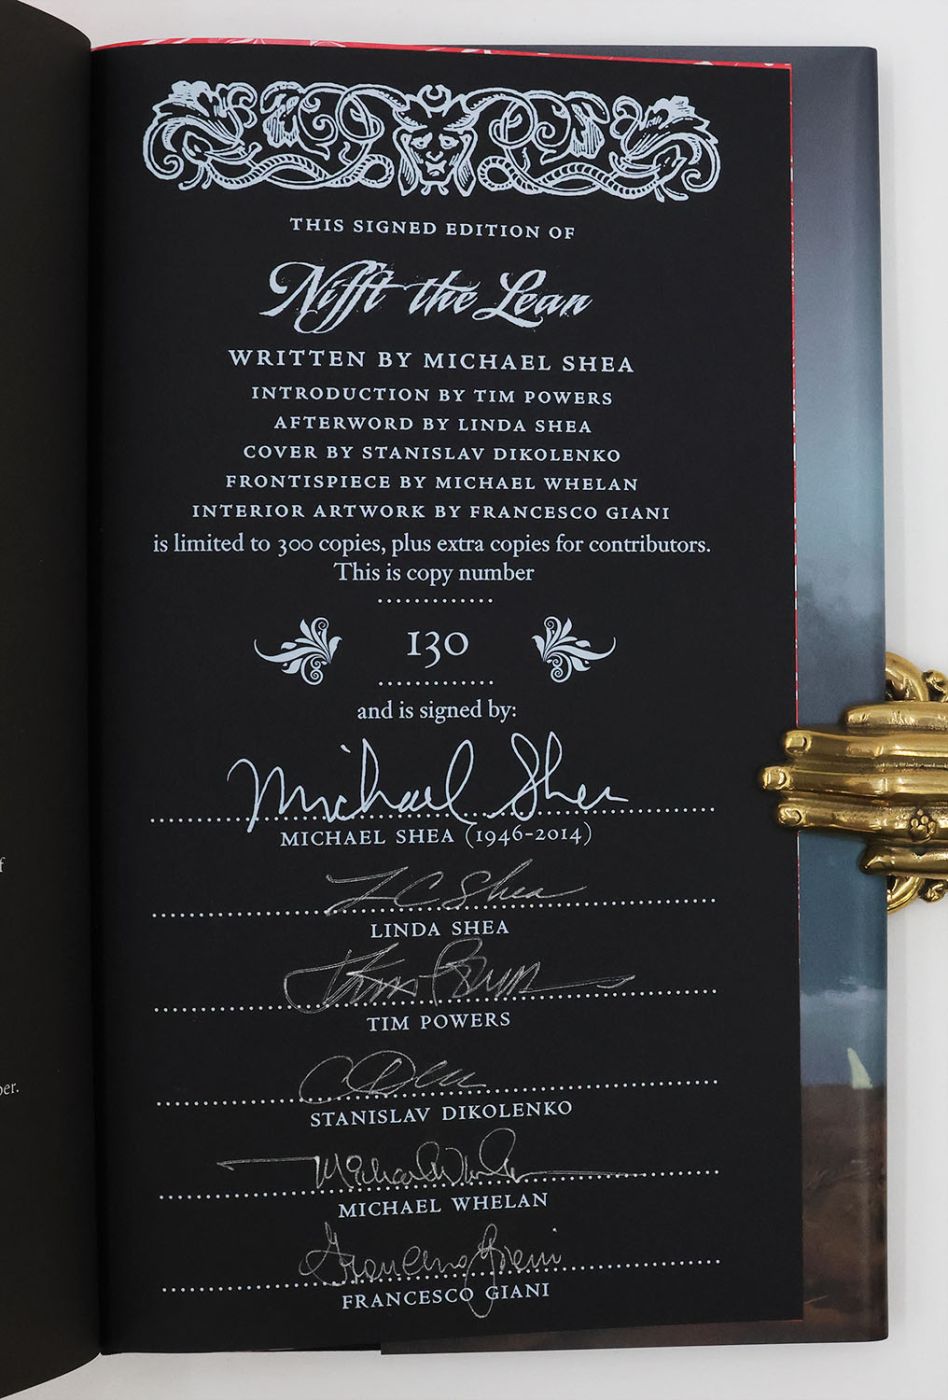 THIS SIGNED EDITION OF
Nifft the Lean
WRITTEN BY MICHAEL SHEA
INTRODUCTION BY TIM POWERS
AFTERWORD BY LINDA SHEA
COVER BY STANISLAV DIKOLENKO
FRONTISPIECE BY MICHAEL WHELAN
INTERIOR ARTWORK BY FRANCESCO GIANI
is limited to 300 copies, plus extra copies for contributors.
This is copy number
130
and is signed by:
Michael Shea
MICHAEL SHEA (1946-2014)
L C Shea
LINDA SHEA
TIM POWERS
STANISLAV DIKOLENKO
Michael Whelan
MICHAEL WHELAN
Francesco Giani
FRANCESCO GIANI